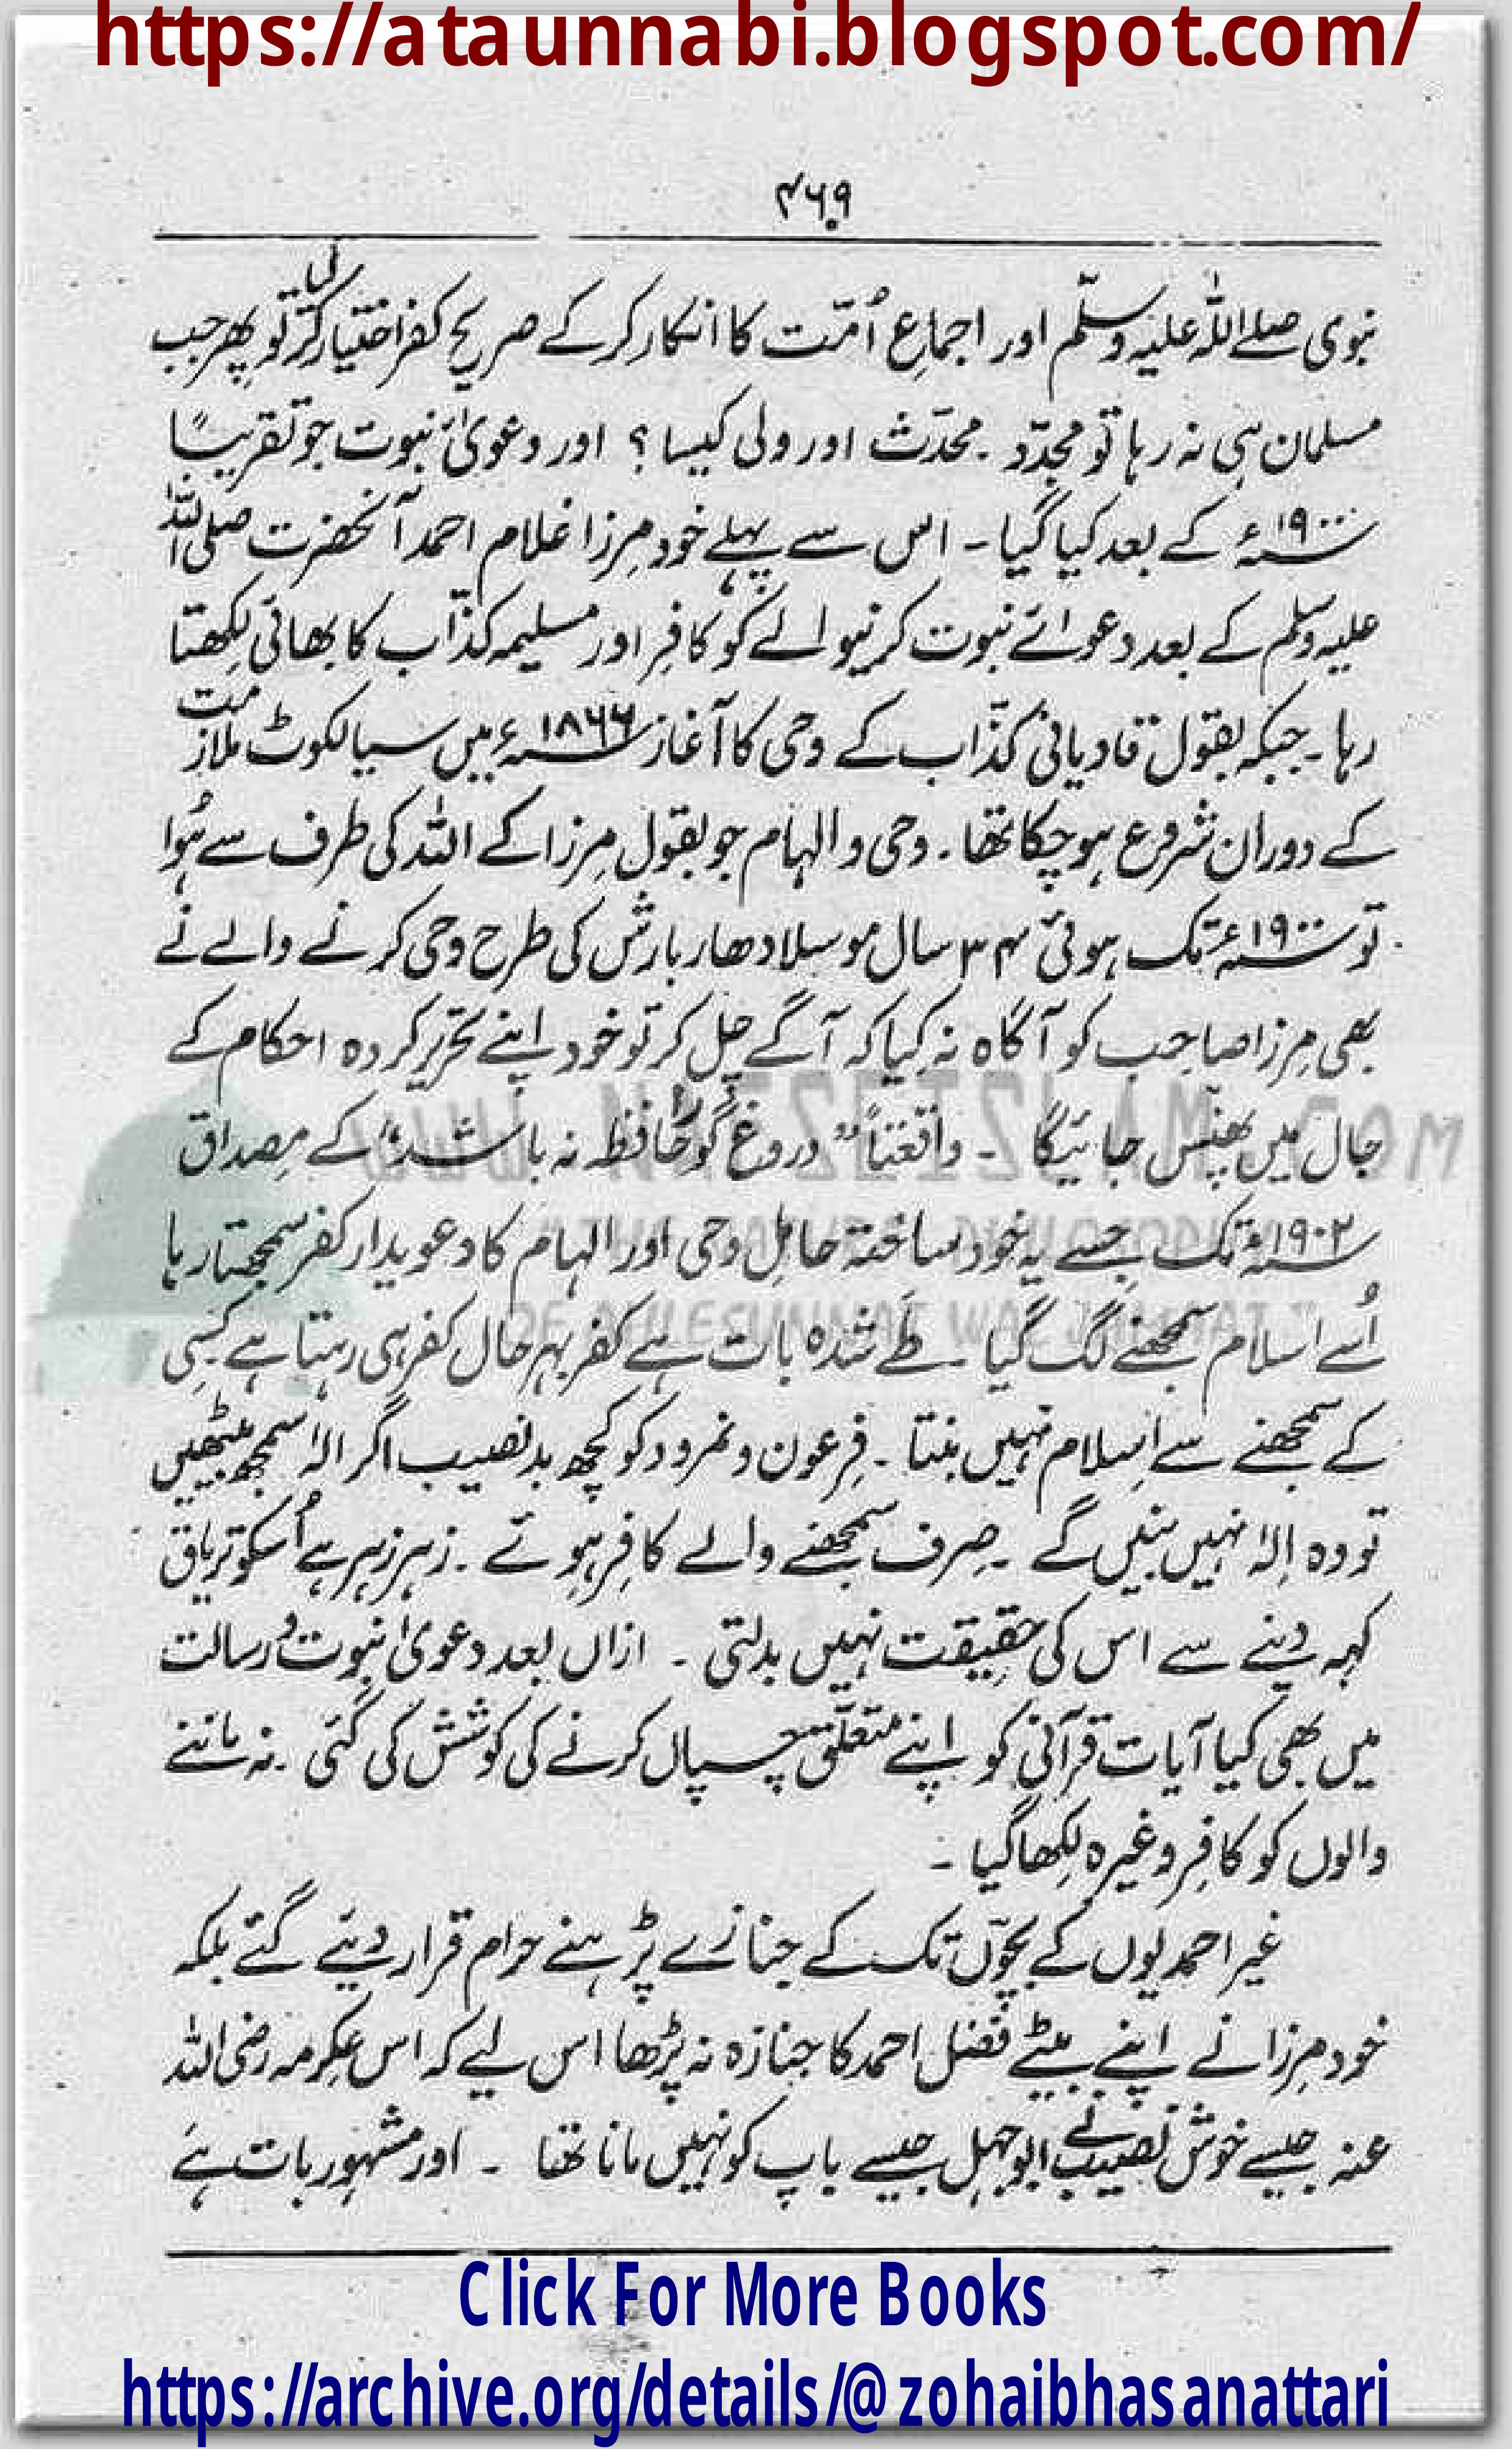 https://ataunnabi.blogspot.com/
۴۶۹
نبوی صلے اللہ علیہ وسلّم اور اجماعِ اُمّت کا انکار کر کے صریح کفر اختیار کر لی تو پھر جب
مسلمان ہی نہ رہا تو مجدّد ۔ محدّث اور ولی کیسا ؟ اور دعویٰ نبوت جو تقریباً
۱۹۰۰ء کے بعد کیا گیا ۔ اس سے پہلے خود مِرزا غلام احمد آنحضرت صلی اللہ
علیہ وسلم کے بعد دعوائے نبوت کرنیوالے کو کافِر اور مسلیمہ کذّاب کا بھائی لکھتا
رہا ۔ جبکہ بقول قادیانی کذّاب کے وحی کا آغاز ۱۸۶۶ء میں سیالکوٹ ملازمت
کے دوران شروع ہو چکا تھا ۔ وحی و الہام جو بقول مِرزا کے اللہ کی طرف سے ہُوا
تو ۱۹۰۰ء تک ہوئی ۳۴ سال موسلادھار بارش کی طرح وحی کرنے والے نے
بھی مِرزا صاحب کو آگاہ نہ کیا کہ آگے چل کر تو خود اپنے تحریر کردہ احکام کے
جال میں پھنس جائیگا ۔ واقعتاً ”دروغ گو را حافظہ نہ باشد“ کے مِصداق
۱۹۰۲ء تک جسے یہ خود ساختہ حامِل وحی اور الہام کا دعویدار کفر سمجھتا رہا
اُسے اسلام سمجھنے لگ گیا ۔ طَے شدہ بات ہے کفر بہر حال کفر ہی رہتا ہے کِسی
کے سمجھنے سے اِسلام نہیں بنتا ۔ فِرعون و نمرود کو کچھ بدنصیب اگر الٰہ سمجھ بیٹھیں
تو وہ اِلٰہ نہیں بنیں گے ۔ صِرف سمجھنے والے کافِر ہوئے ۔ زہر زہر ہے اُسکو تریاق
کہہ دینے سے اس کی حقیقت نہیں بدلتی ۔ ازاں بعد دعویٰ نبوت و رسالت
میں بھی کیا آیات قرآنی کو اپنے متعلّق چسپاں کرنے کی کوشش کی گئی ۔ نہ ماننے
والوں کو کافِر وغیرہ لکھا گیا ۔
غیر احمدیوں کے بچّوں تک کے جنازے پڑہنے حرام قرار دیئے گئے بلکہ
خود مِرزا نے اپنے بیٹے فضل احمد کا جنازہ نہ پڑھا اس لیے کہ اس عکرمہ رضی اللہ
عنہ جیسے خوش نصیب نے ابوجہل جیسے باپ کو نہیں مانا تھا ۔ اور مشہور بات ہے
Click For More Books
https://archive.org/details/@zohaibhasanattari